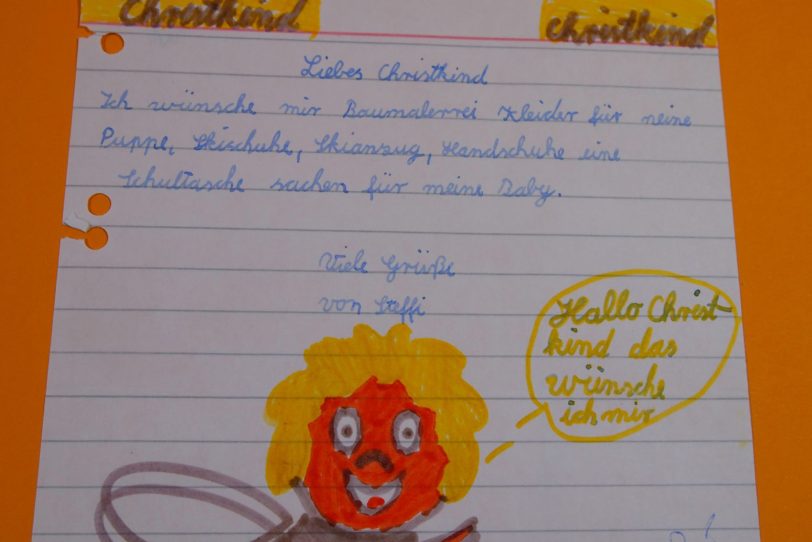 Christkind christkind
Liebes Christkind
Ich wünsche mir Baumalerrei Kleider für neine
Puppe, Skischuhe, Skianzug, Handschuhe eine
Schultasche sachen für meine Baby.
Viele Grüße
von Steffi
Hallo Christ
kind das
wünsche
ich mir